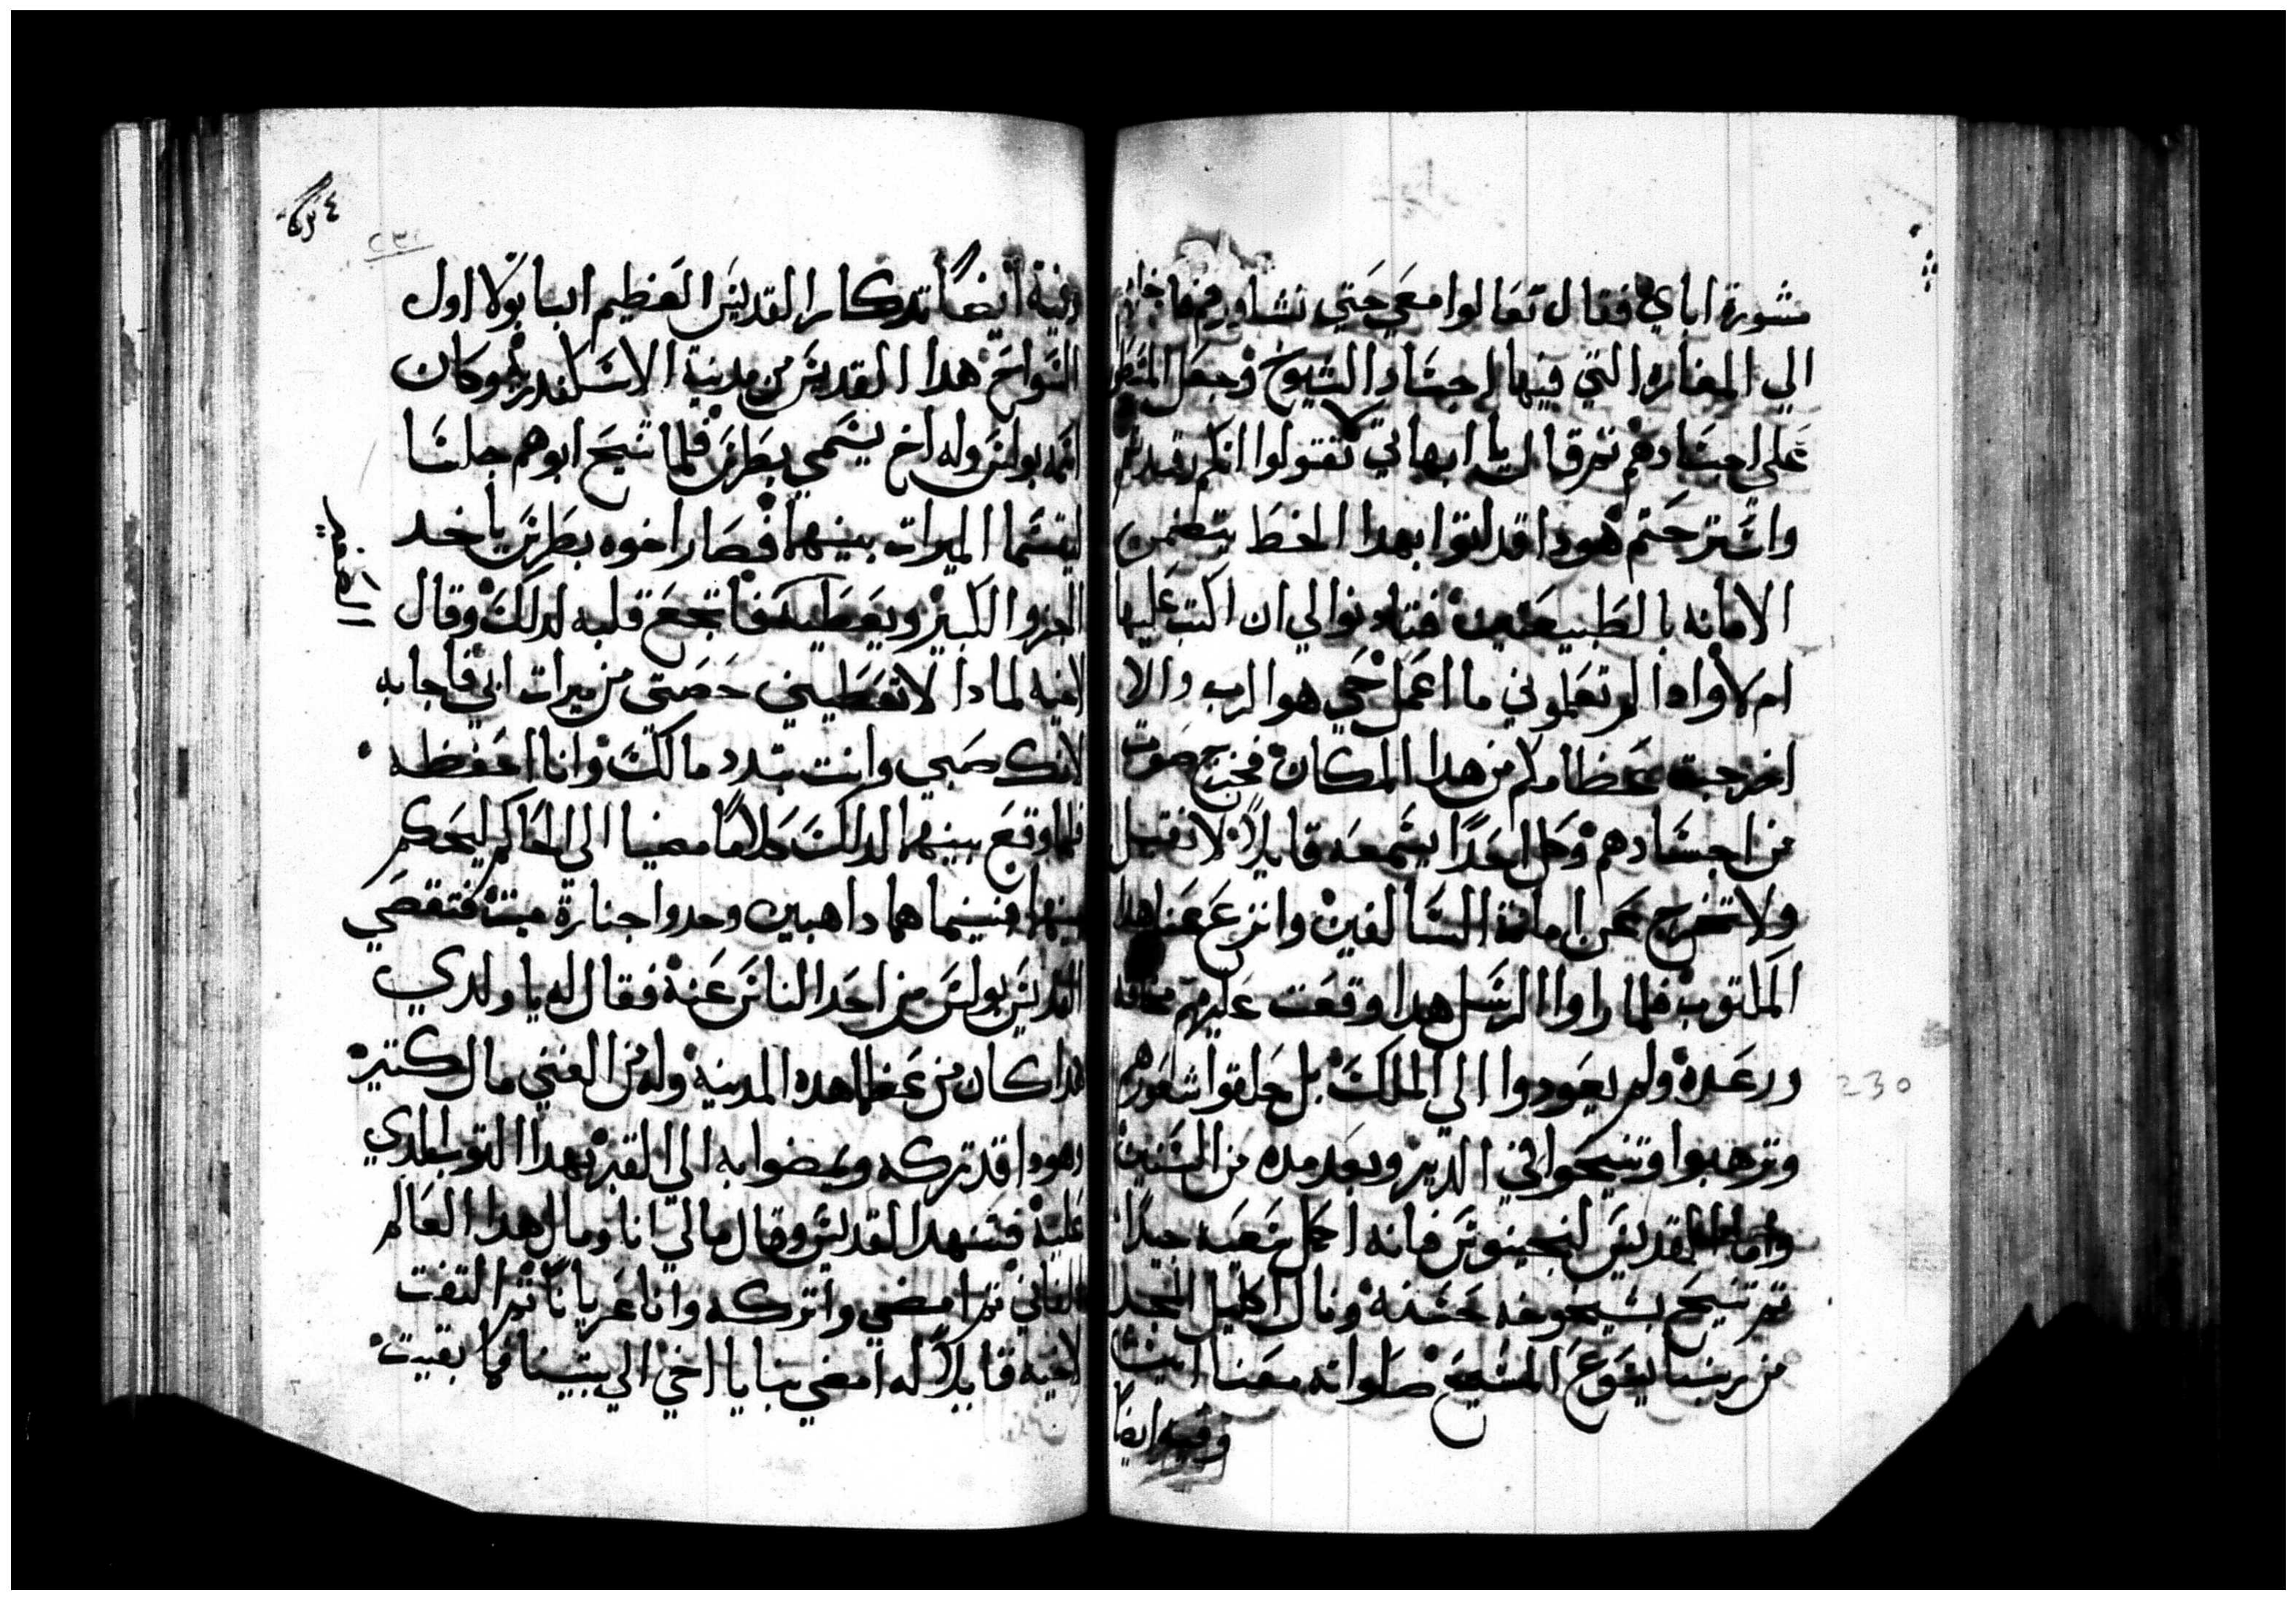 مشورة اباي فقال تعالوا معي حتي نشاورهم فاخدهم
الي المغاره التي فيها اجساد الشيوخ وجعل
علي اجسادهم تم قال يا ابهاتي لا تقولوا انكم رقدتم
واسترحتم هودا قد اتوا بهدا الخط يتضمن
الامانه بالطبيعتين فتادنوا لي ان اكتب عليها
ام لا وادا لم تعلموني ما اعمل حي هو الرب والا
اخرجت عظامكم من هدا المكان فخرج صوت
من اجسادهم وكل احدا يسمعه قايلاً لا تقبل
ولا تخرج عن امانة السالفين وانزع عنا هدا
المكتوب فلما راوا الرسل هدا وقعت عليهم مخافه
ورعده ولم يعودوا الي الملك بل حلقوا شعورهم
وترهبوا وتنيحوا في الدير وبعد مده من السنين
واما القديس لنجينوس فانه اكمل سعيه جيدًا
تم تنيح بشيخوخه حسنه ونال اكليل المجد
من ربنا يسوع المسيح صلواته معنا امين
وفيه ايضًا
٢٣٠
230
وفيه ايضًا تدكار القديس العظيم انبا بولا اول
السواح هدا القديس من مدينة الاسكندريه وكان
اسمه بولس وله اخ يسمي بطرس فلما تنيح ابوهم جلسا
ليقسما الميرات بينهما فصار اخوه بطرس ياخد
الجزو الكبير ويعطيه فاتجع قلبه لدلك وقال
لاخيه لمادا لا تعطيني حصتي من ميرات ابي فاجابه
لانك صبي وانت تبدد مالك وانا احفظه
فلما وقع بينهما لدلك كلامًا مضيا الي الحاكم ليحكم
بينهما فبينما هما داهبين وجدوا جنازة ميت فتقصي
القديس بولس من احد الناس عنه فقال له يا ولدي
هدا كان من عظما هده المدينه وله من الغني مال كتير
وهودا قد تركه ويمضوا به الي القبر بهدا التوب الدي
عليه فتنهد القديس وقال مالي انا ومال هدا العالم
الفاني تم امضي واتركه وانا عريانًا تم التفت
لاخيه قايلاً له امضي بنا يا اخي الي بيتنا فما بقيت